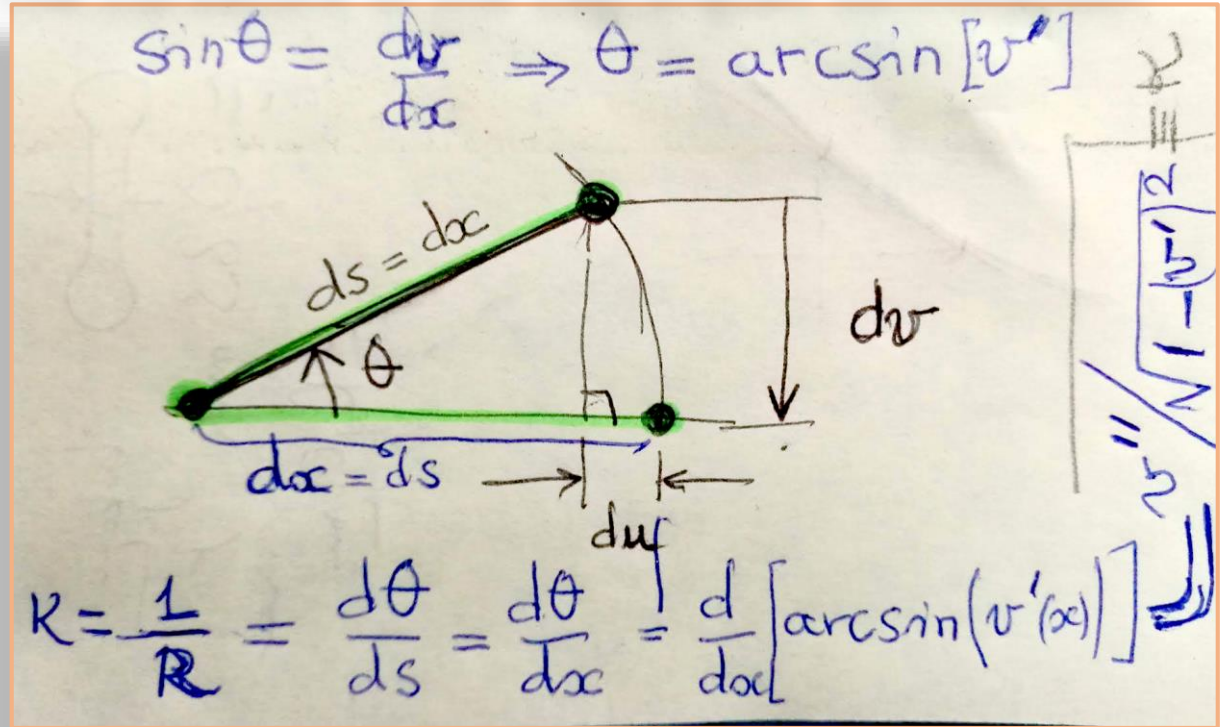 sinθ = dv/dx ⇒ θ = arcsin[v']
ds = dx
θ
dv
dx = ds
du
κ = 1/R = dθ/ds = dθ/dx = d/dx [arcsin(v'(x))]
v''/√1-(v')² ≡ κ